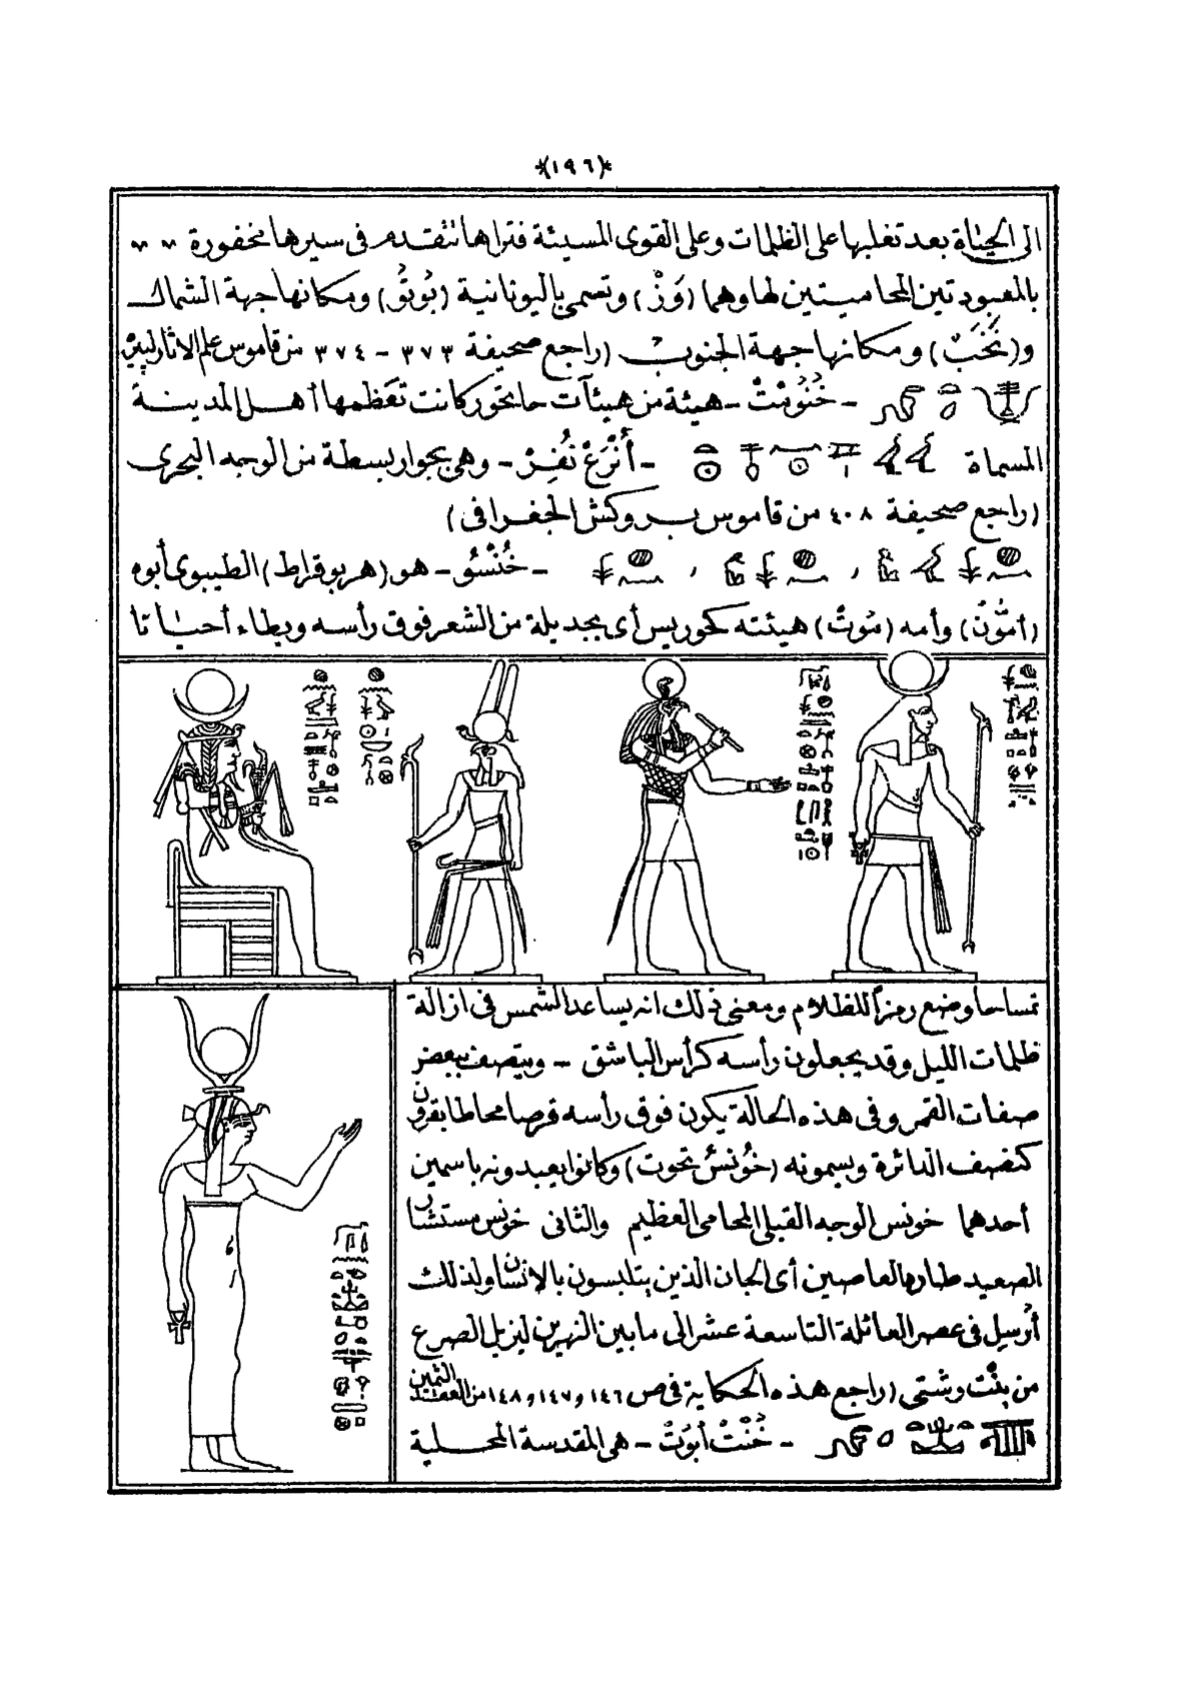 *(١٩٦)*
الى الحياة بعد تغلبها على الظلمات وعلى القوى المسيئة فتراها تتقدم فى سيرها مخفورة
بالمعبودتين المحاميتين لها وهما (وَزْ) وتسمى باليونانية (بُوتُو) ومكانها جهة الشمال
و(نَخَبْ) ومكانها جهة الجنوب (راجع صحيفة ٣٧٣ - ٣٧٤ من قاموس علم الاثار لپيرّ
- خُنُوتِتْ - هيئة من هيئات حاتحور كانت تعظمها أهل المدينة
المسماة - أَنْرَعْ نُفِرْ - وهى بجوار بسطة من الوجه البحرى
(راجع صحيفة ٤٠٨ من قاموس بروكش الجغرافى)
، ، - خُنْسُو - هو (هربوقراط) الطيبوى أبوه
(أمُون) وأمه (مُوتْ) هيئته كحوريس أى بجديلة من الشعر فوق رأسه ويطاء أحيانا
تمساحا وضع رمزا للظلام ومعنى ذلك انه يساعد الشمس فى ازالة
ظلمات الليل وقد يجعلون رأسه كرأس الباشق - ويتصف ببعض
صفات القمر وفى هذه الحالة يكون فوق رأسه قرصا محاطا بقرون
كنصف الدائرة ويسمونه (خُونْسُ تحوت) وكانوا يعبدونه باسمين
أحدهما خونس الوجه القبلى المحامى العظيم والثانى خونس مستشار
الصعيد طارد العاصين أى الجان الذين يتلبسون بالانسان ولذلك
أرسل فى عصر العائلة التاسعة عشر الى مابين النهرين ليزيل الصرع
من بنْت وشتى (راجع هذه الحكاية فى ص ١٤٦ و١٤٧ و١٤٨ من العقد الثمين
- خُنْتْ أَبُوتْ - هى المقدسة المحلية